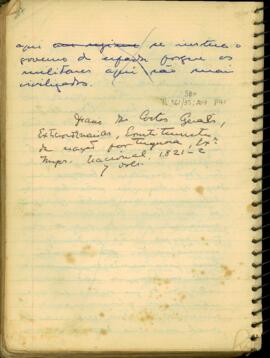 aqui se instalou o
governo de espada porque os
militares aqui são mais
civilizados.
Diario das Cortes Gerais,
Extraordinarias, Constituintes
da nação portuguesa, Lxª
Impr. Nacional, 1821-2
7 vols.